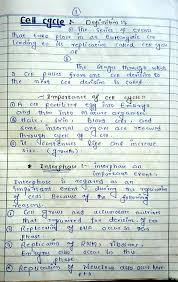 ①
Cell cycle :- Definition :-
① The series of events
that take place in an Eukaryotic cell
leading to its replication called cell cycle
or
② The stages through which
a cell passes from one cell division to
the next cell division is called
* Importance of cell cycle :-
① A cell fertilized egg into Embryo
and then into mature organism
② Hair, skin, Blood cell and
some internal organs are renewed
through cycle of cell
③ It continues life and increase
size (growth)
* Interphase :- interphase an
important event :-
Interphase is regards as an
important event during the replication
of cells Because of the following
reasons.
① Cell grows and accumulate nutrients
that required for division of cell
② Replicating of DNA occur in this
phase
③ Replicating of RNA, ribosome,
Enzymes also occur in this
phase
④ Replication of Nucleus also occur here